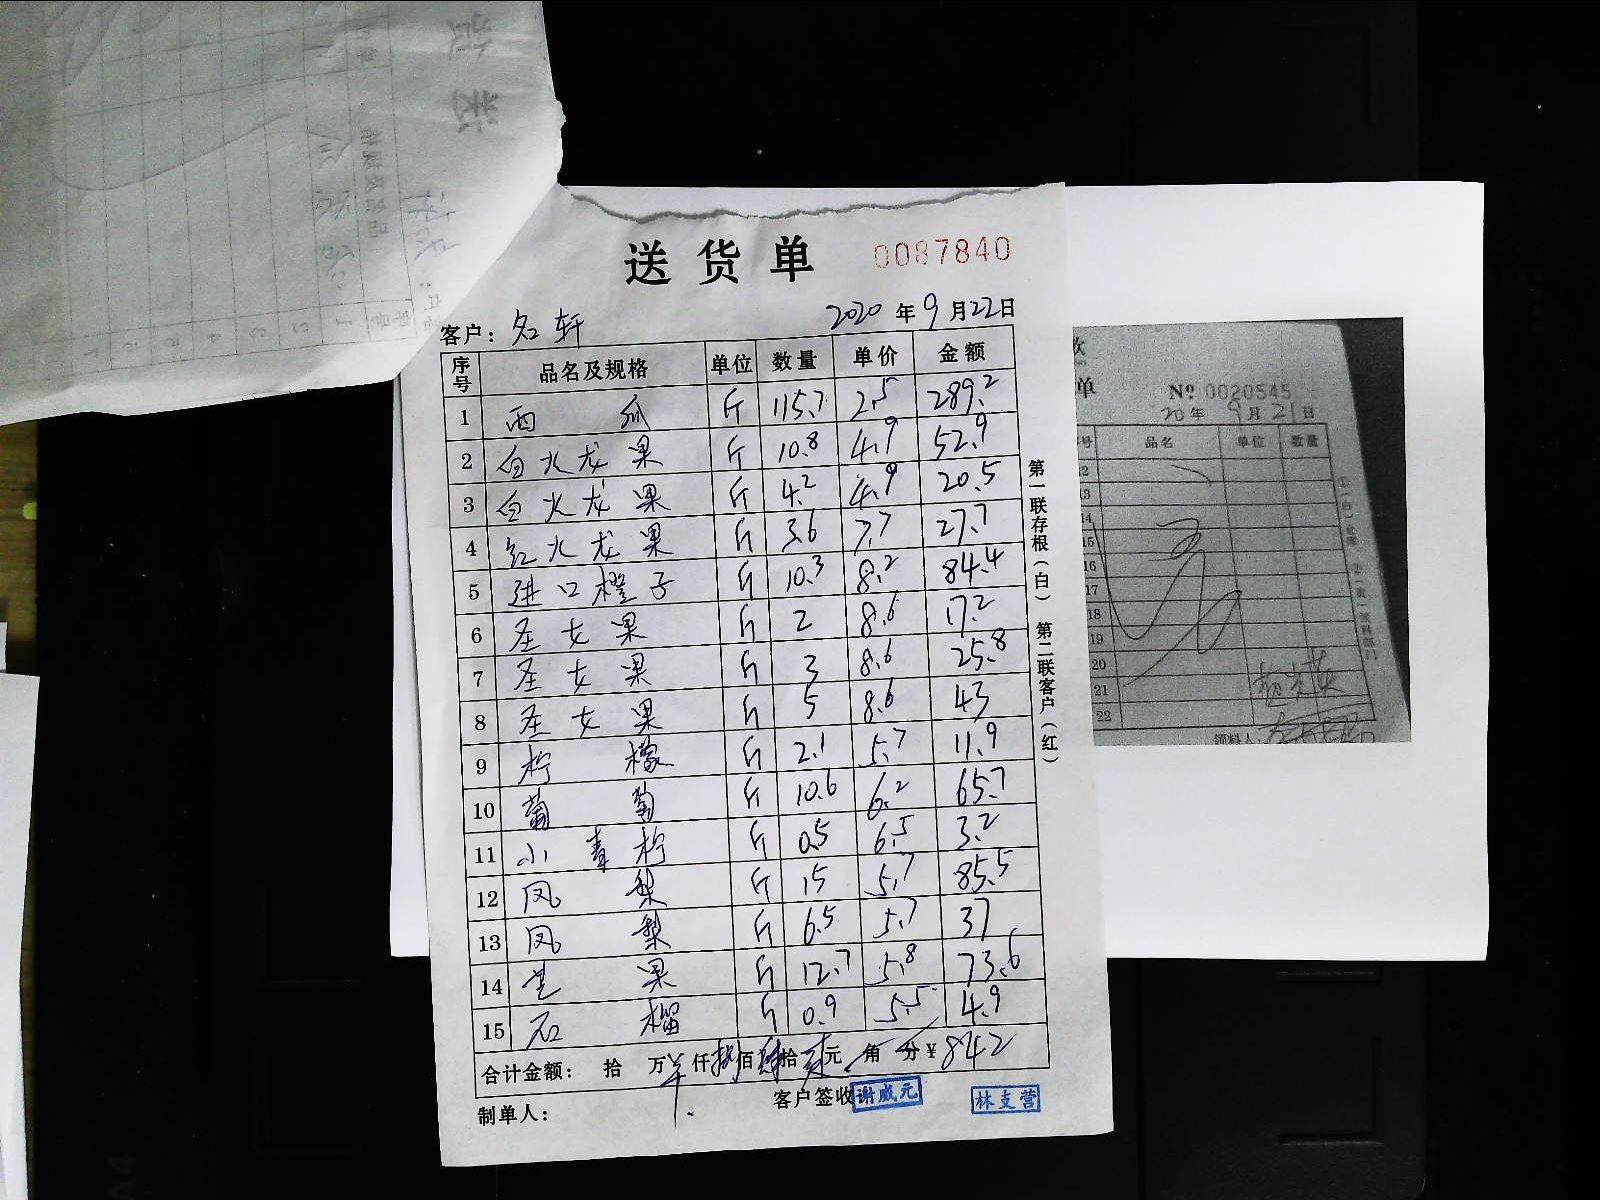 送货单 0087840
客户: 名轩 2020年9月22日
序号 品名及规格 单位 数量 单价 金额
1 西瓜 斤 115.7 2.5 289.2
2 白火龙果 斤 10.8 4.9 52.9
3 白火龙果 斤 4.2 4.9 20.5
4 红火龙果 斤 3.6 7.7 27.7
5 进口橙子 斤 10.3 8.2 84.4
6 圣女果 斤 2 8.6 17.2
7 圣女果 斤 3 8.6 25.8
8 圣女果 斤 5 8.6 43
9 柠檬 斤 2.1 5.7 11.9
10 葡萄 斤 10.6 6.2 65.7
11 小青柠 斤 0.5 6.5 3.2
12 凤梨 斤 15 5.7 85.5
13 凤梨 斤 6.5 5.7 37
14 芒果 斤 12.7 5.8 73.6
15 石榴 斤 0.9 5.5 4.9
合计金额: 拾 万 仟捌佰肆拾贰元 角 分 ¥842
制单人: 客户签收 谢威元 林支营
第一联存根(白) 第二联客户(红)
款
单 Nº 0020545
20年9月21日
号 品名 单位 数量
12
13
14
15
16
17
18
19
20
21
22
领料人: